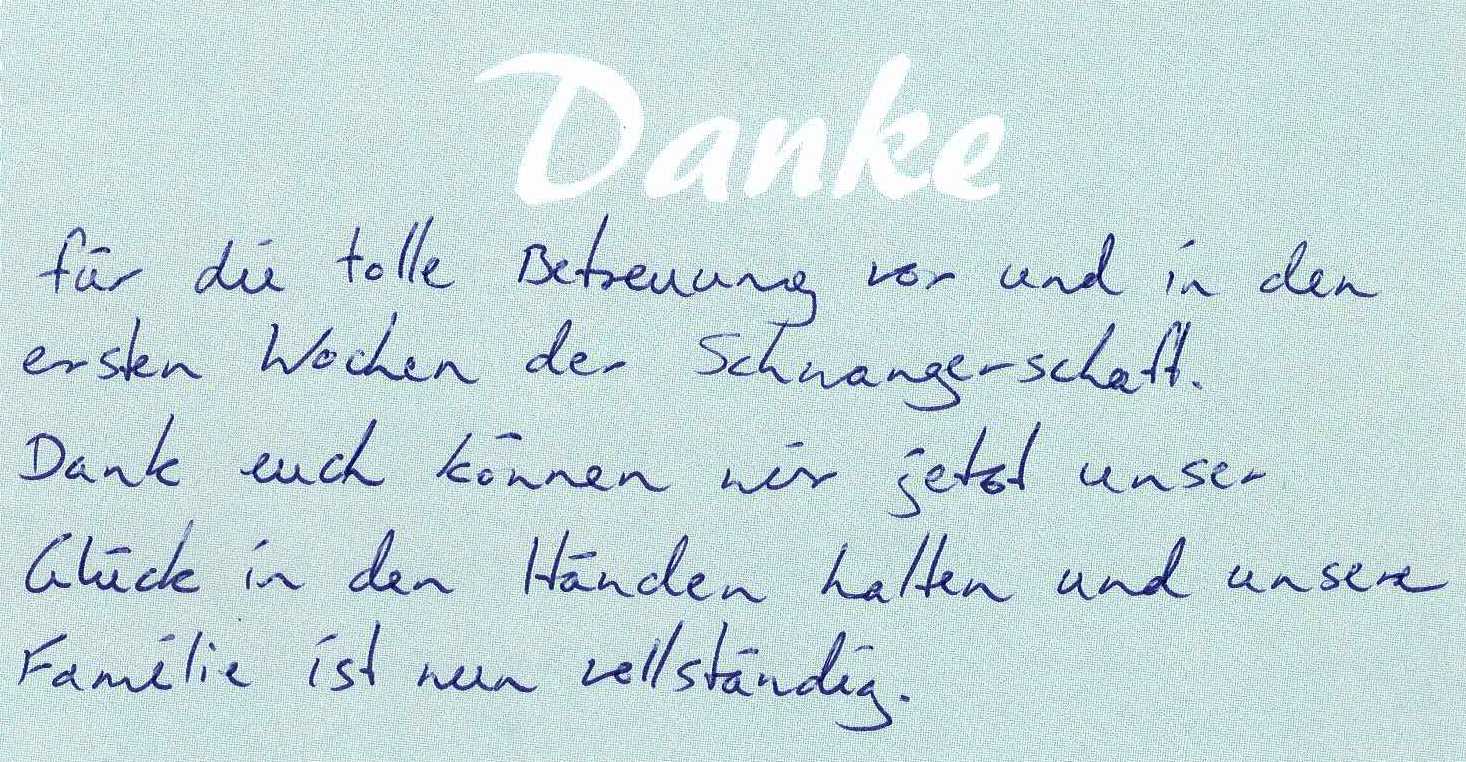 Danke
für die tolle Betreuung vor und in den
ersten Wochen der Schwangerschaft.
Dank euch können wir jetzt unser
Glück in den Händen halten und unsere
Familie ist nun vollständig.